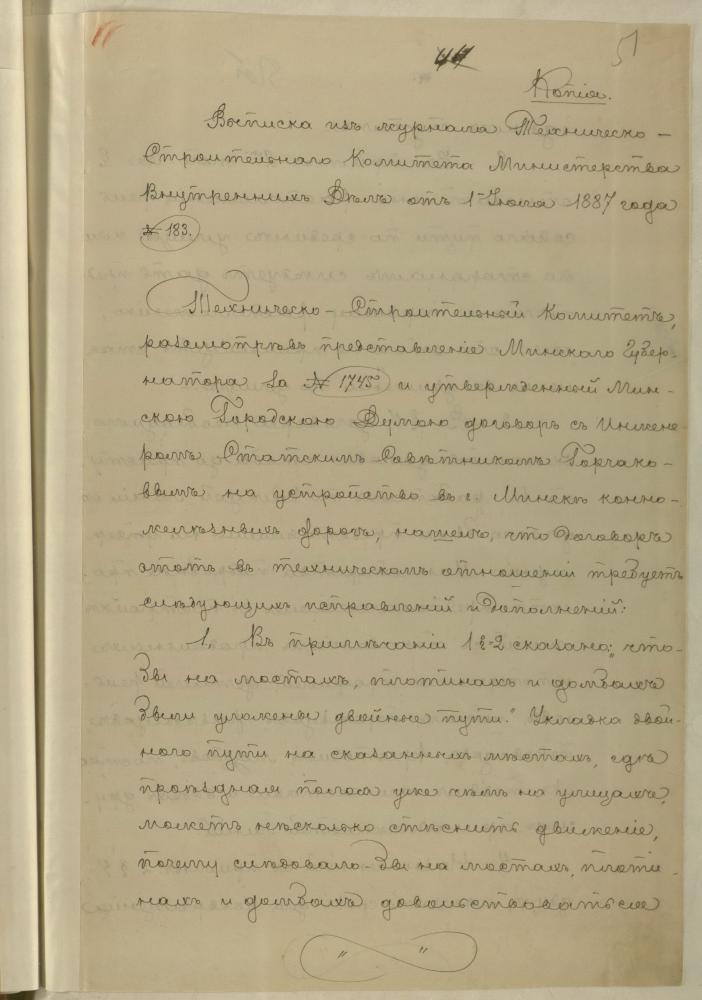 44 51
Копія.
Выписка изъ журнала Техническо-
Строительнаго Комитета Министерства
Внутреннихъ Дѣлъ отъ 1-Іюля 1887 года
№ 183.
Техническо-Строительный Комитетъ,
разсмотрѣвъ представленіе Минскаго Губер-
натора за № 1745 и утвержденный Мин-
скою Городскою Думою договоръ съ Инжене-
ромъ Статскимъ Совѣтникомъ Горчако-
вымъ на устройство въ г. Минскѣ конно-
желѣзныхъ дорогъ, нашелъ, что договоръ
этотъ въ техническомъ отношеніи требуетъ
слѣдующихъ исправленій и дополненій:
1, Въ примѣчаніи 1 §-2 сказано: „что-
бы на мостахъ, плотинахъ и дамбахъ
были уложены двойные пути." Укладка двой-
ного пути на сказанныхъ мѣстахъ, гдѣ
проѣздная полоса уже чѣмъ на улицахъ,
можетъ нѣсколько стѣснить движеніе,
почему слѣдовало-бы на мостахъ, плоти-
нахъ и дамбахъ довольствоваться